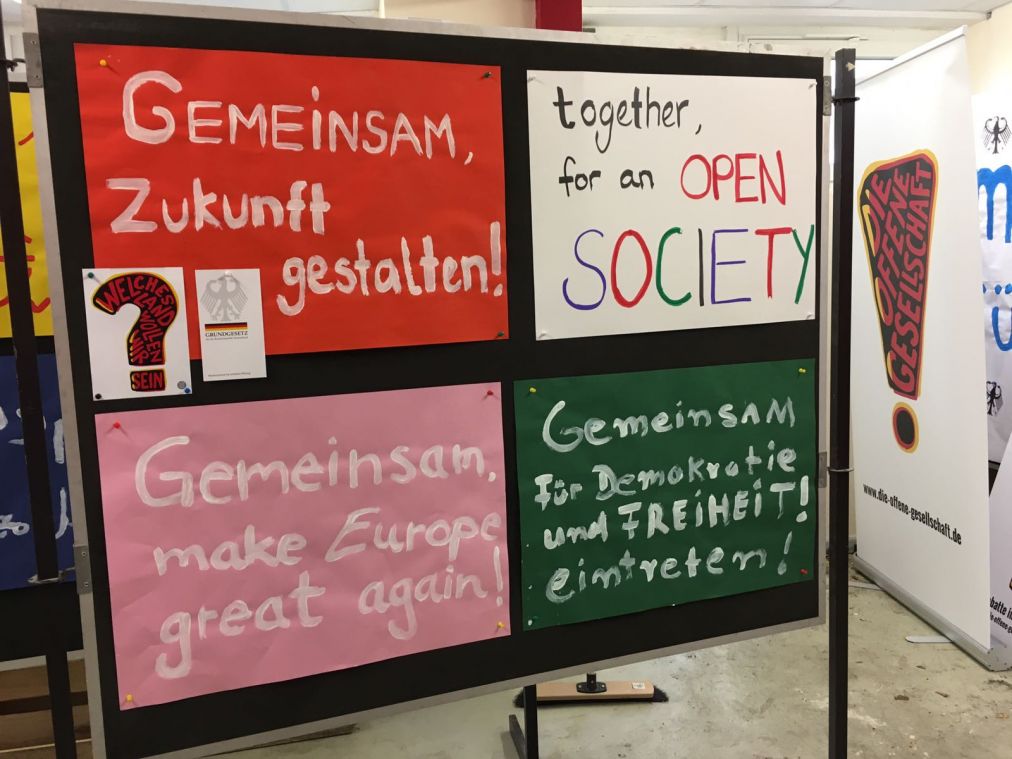 GEMEINSAM,
Zukunft
gestalten!
together,
for an OPEN
SOCIETY
WELCHES
LAND WOLLEN
WIR
SEIN
GRUNDGESETZ
Gemeinsam,
make Europe
great again!
GemeinsAM
für Demokratie
und FREiHEiT!
eintreten!
DIE
OFFENE
GESELLSCHAFT
www.die-offene-gesellschaft.de